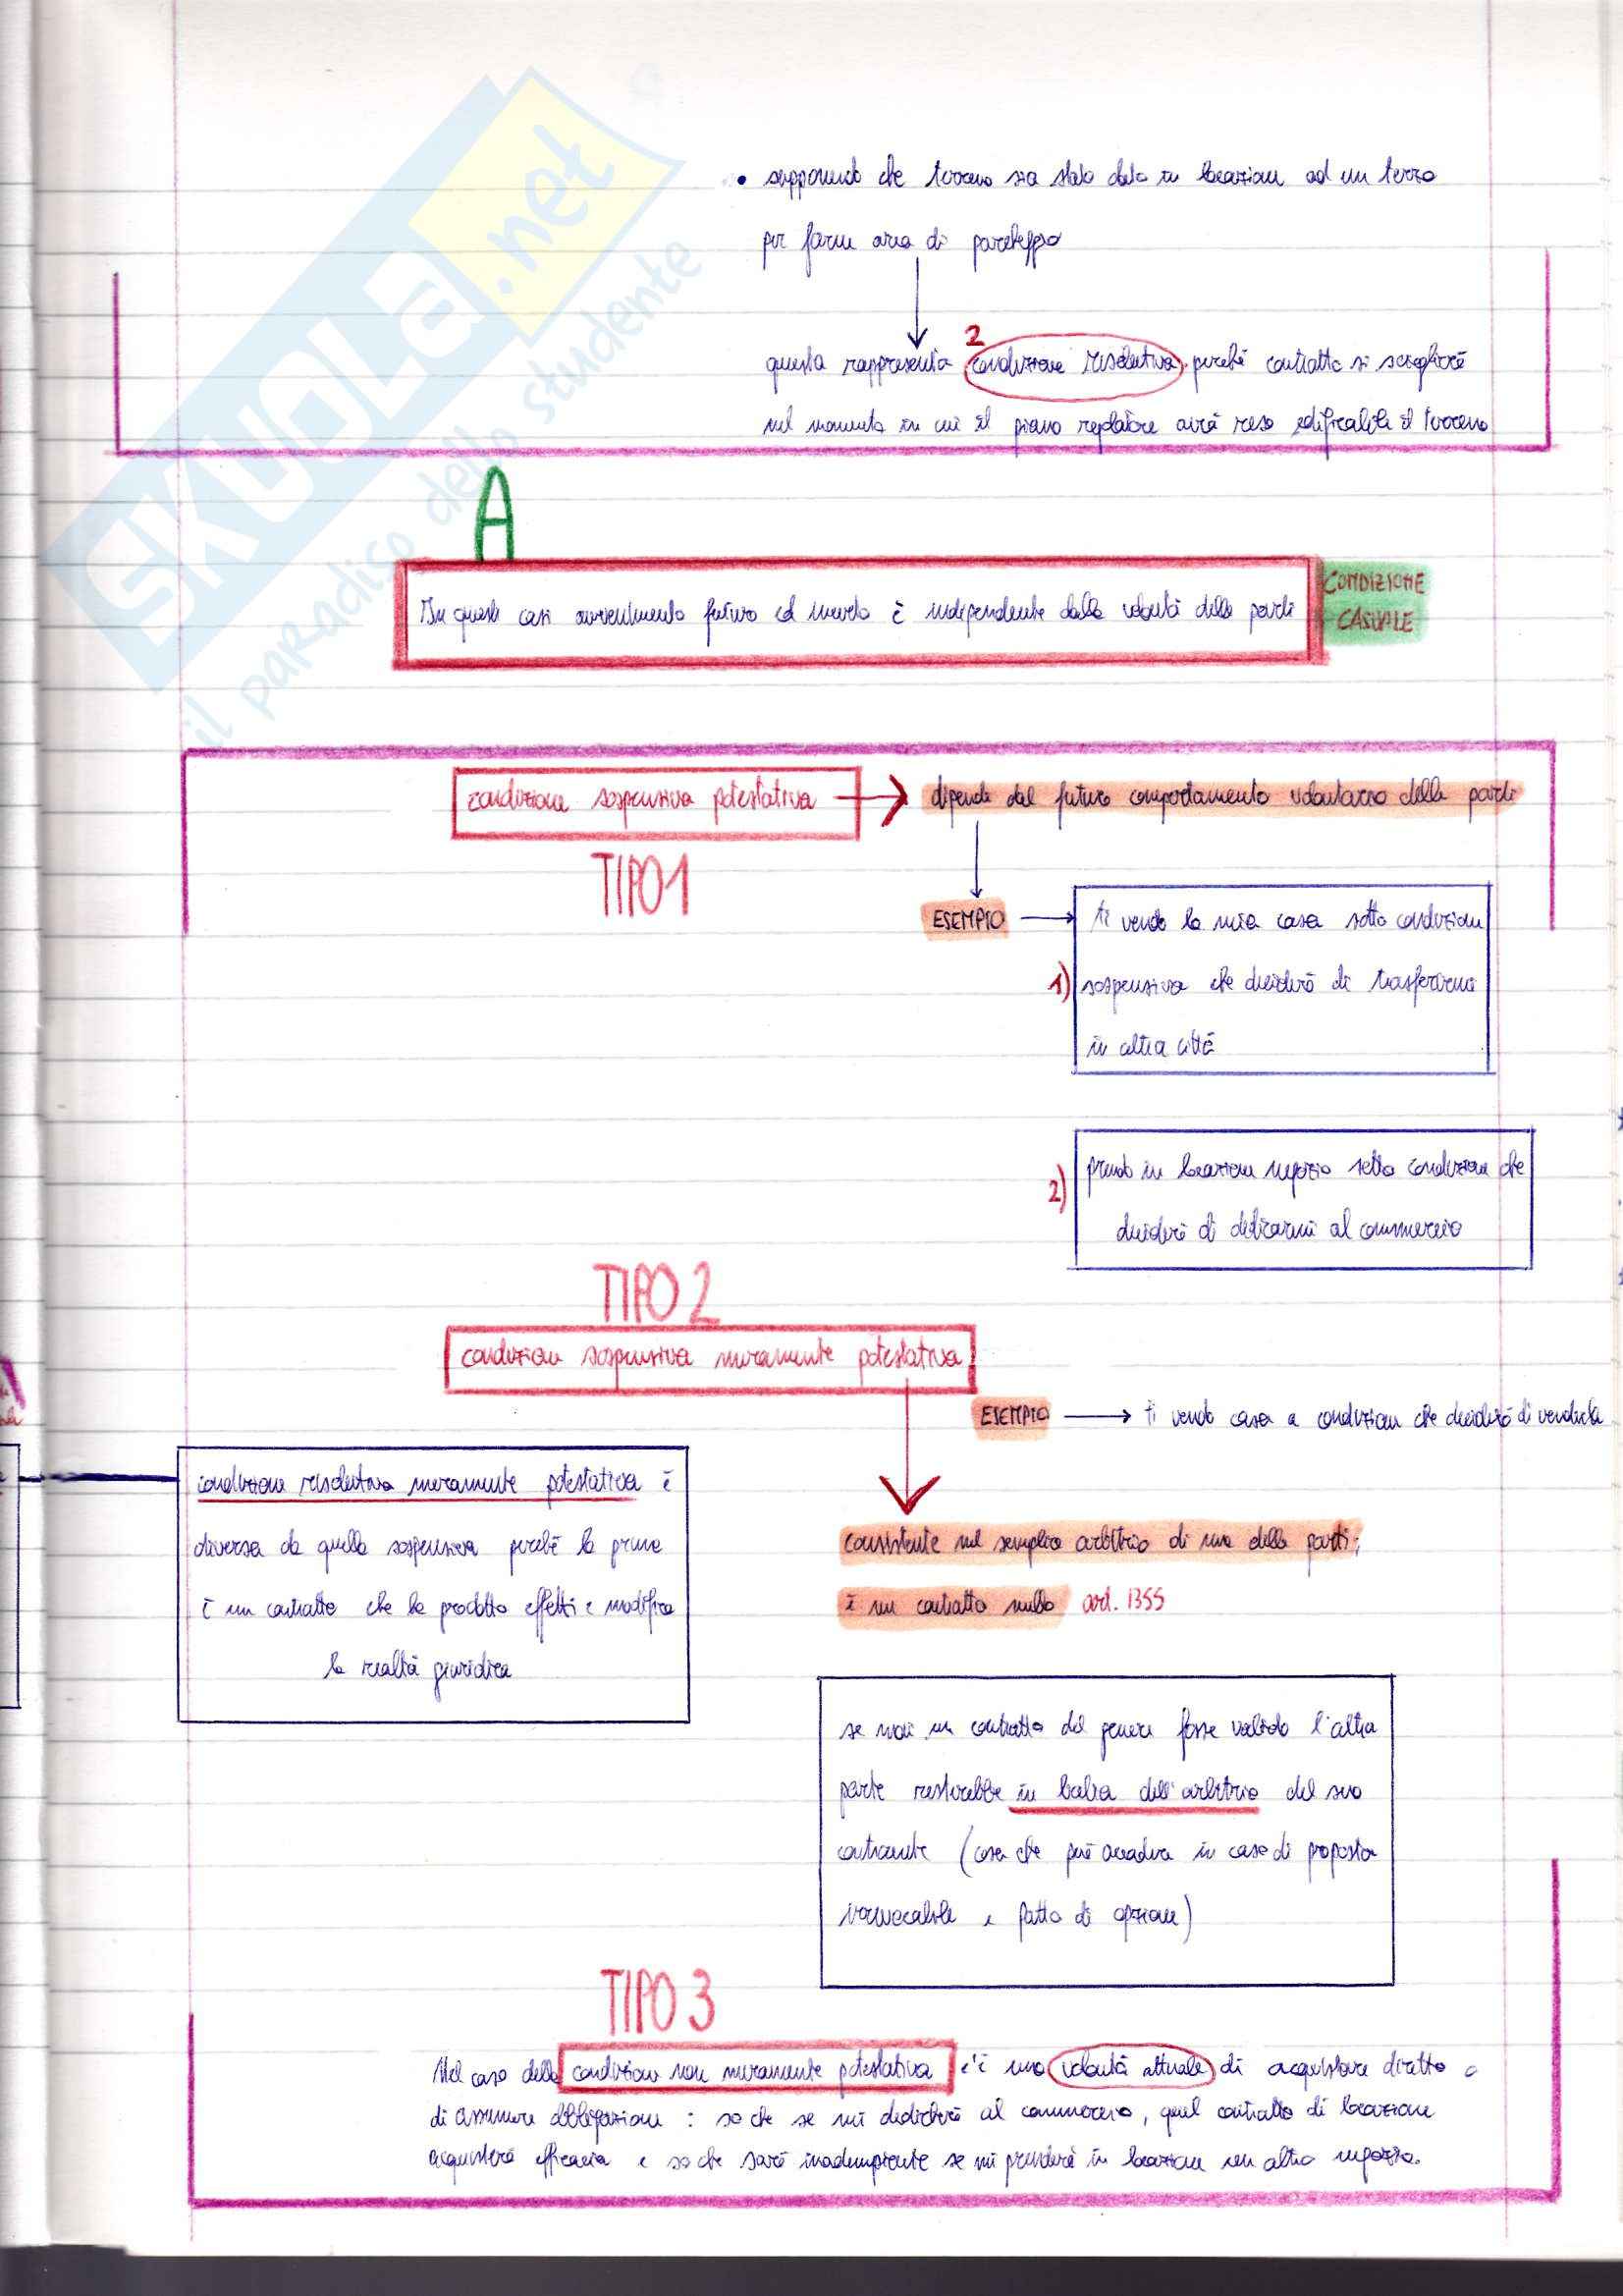 SKUOLA.net
il paradiso dello studente
• supponendo che terreno sia stato dato in locazione ad un terzo
per farne area di parcheggio
questa rappresenta 2 condizione risolutiva perché contratto si scioglierà
nel momento in cui il piano regolatore avrà reso edificabile il terreno
A
In questi casi avvenimento futuro ed incerto è indipendente dalla volontà delle parti
CONDIZIONE
CASUALE
condizione sospensiva potestativa
dipende dal futuro comportamento volontario delle parti
TIPO 1
ESEMPIO
ti vendo la mia casa sotto condizione
1) sospensiva che deciderò di trasferirmi
in altra città
2) prendo in locazione negozio sotto condizione che
deciderò di dedicarmi al commercio
TIPO 2
condizione sospensiva meramente potestativa
ESEMPIO ti vendo casa a condizione che deciderò di venderla
condizione risolutiva meramente potestativa è
diversa da quella sospensiva perché la prima
è un contratto che ha prodotto effetti e modifica
la realtà giuridica
consistente nel semplice arbitrio di una delle parti;
è un contratto nullo art. 1355
se mai un contratto del genere fosse valido l'altra
parte resterebbe in balia dell'arbitrio del suo
contraente (cosa che può accadere in caso di proposta
irrevocabile e patto di opzione)
TIPO 3
Nel caso della condizione non meramente potestativa c'è una volontà attuale di acquistare diritto o
di assumere obbligazione : so che se mi dedicherò al commercio, quel contratto di locazione
acquisterà efficacia e so che sarò inadempiente se mi prenderò in locazione un altro negozio.